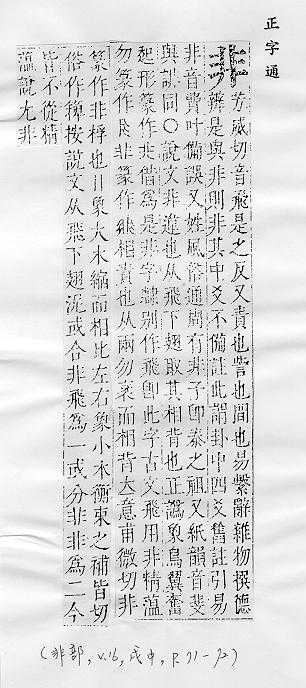 正字通
非 芳威切音飛是之反又責也訾也間也易繫辭雜物撰德
辨是與非則非其中爻不備註此謂卦中四爻舊註引易
非音費叶備誤又姓風俗通周有非子卽秦之祖又紙韻音斐
與誹同〇說文非違也从飛下翅取其相背也正譌象鳥翼奮
起形篆作非借爲是非字隸別作飛卽此字古文飛用非精薀
勿篆作非篆作相責也从兩勿而相背大意甫微切非
篆作非桴也象大木縮而相比左右象小木衡束之補皆切
俗作椑按說文从飛下翅泥或合非飛爲一或分非非爲二今
皆不從精
薀說尤非
(非部, v.16, 戌中, p.71-72)